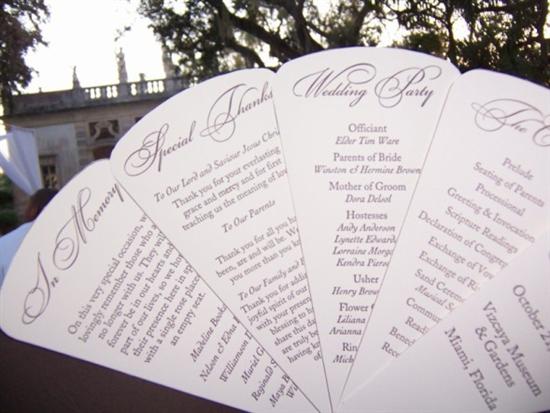 In Memory
On this very special occasion, w
lovingly remember those who a
no longer with us. They will
forever be in our hearts and
part of our lives, so we hon
their presence here in sp
with a single rose place
an empty seat.
Madeline Book
Nelson and Edna
Williamson
Muriel G
Reginald
Maya B
Special Thanks
To Our Lord and Saviour Jesus Chri
Thank you for your everlasting
grace and mercy and for first
teaching us the meaning of lov
To Our Parents
Thank you for all you ha
been, are and will be. W
you more than you kn
To Our Family and
Thank you for
joyful spirit of our
with
blessing to
share this da
truly
having kn
Wedding Party
Officiant
Elder Tim Ware
Parents of Bride
Winston & Hermine Brown
Mother of Groom
Dora Delsol
Hostesses
Andy Anderson
Lynette Edward
Lorraine Morga
Kendra Pierc
Usher
Henry Brown
Flower
Liliana
Arianna
Rin
Mich
The C
Prelude
Seating of Parents
Processional
Greeting & Invocation
Scripture Reading
Declaration of Congreg
Exchange of Vow
Exchange of R
Sand Cerem
Musical S
Commun
Read
Bened
Rec
October 2
Vizcaya Museum
& Gardens
Miami, Florida